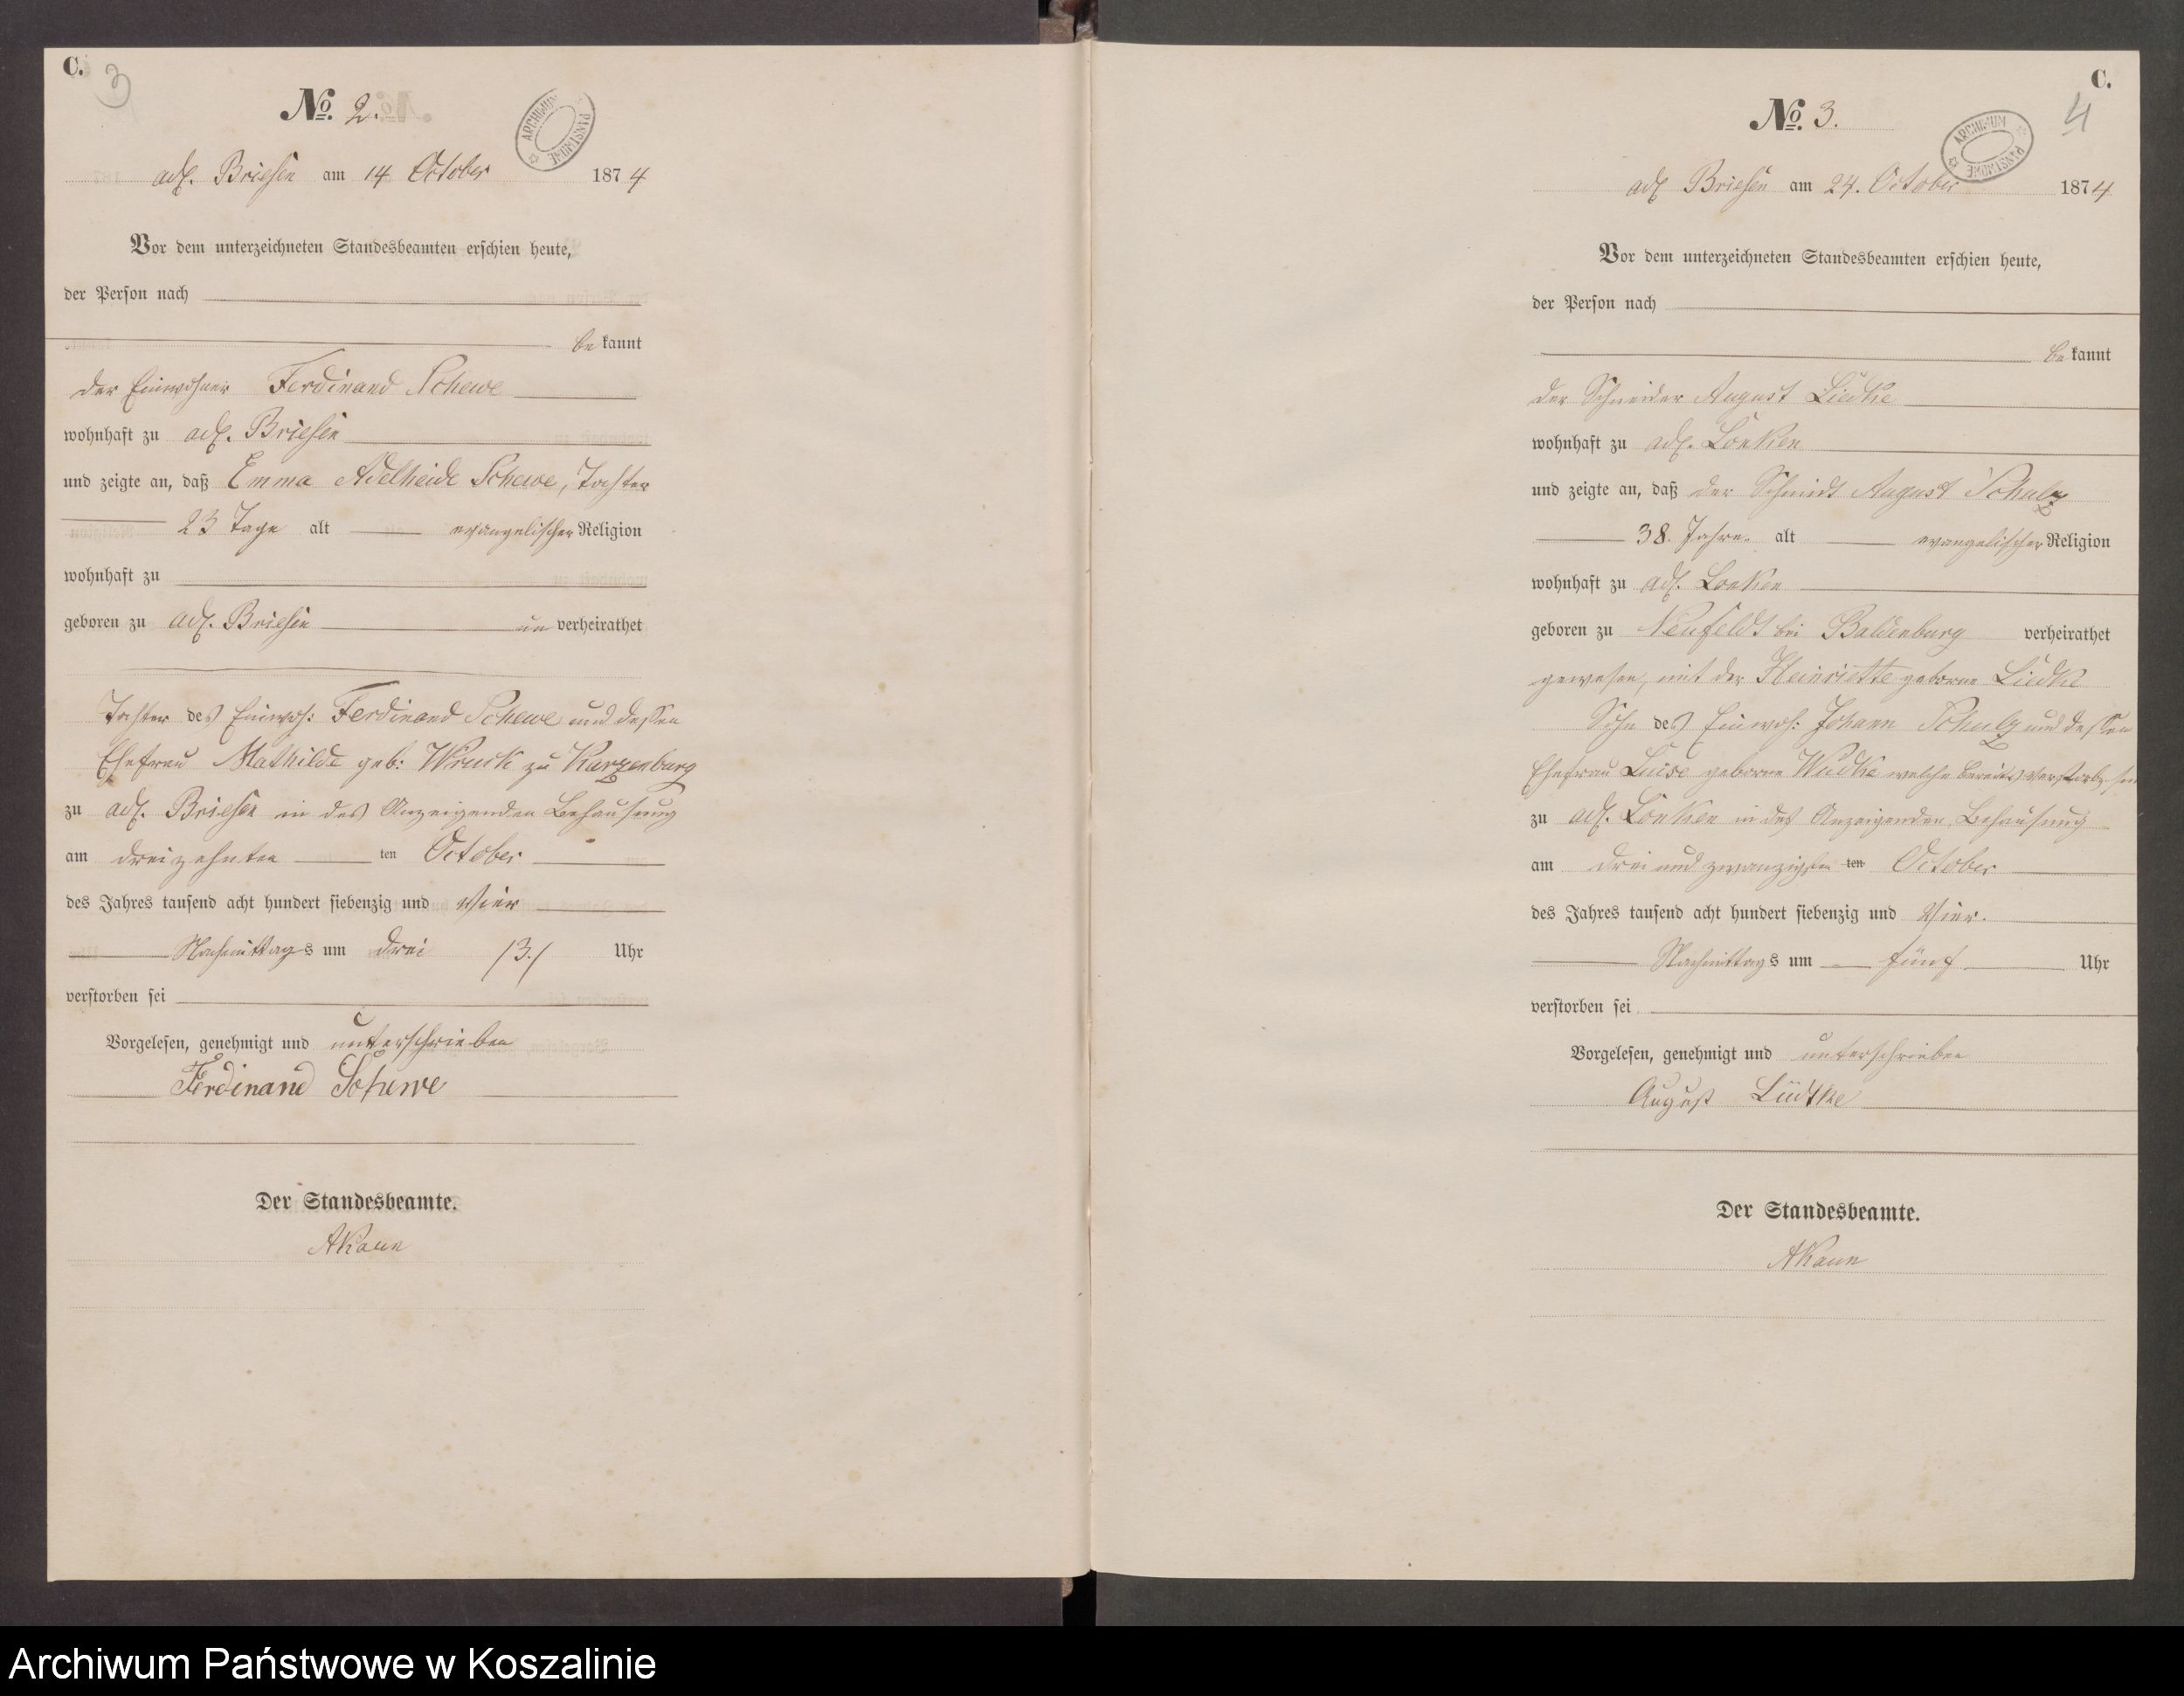 C.
3
No. 2.
ARCHIWUM PAŃSTWOWE
adl. Briesen am 14 October 1874
Vor dem unterzeichneten Standesbeamten erschien heute,
der Person nach
bekannt
der Einwohner Ferdinand Schewe
wohnhaft zu adl. Briesen
und zeigte an, daß Emma Adelheide Schewe, Tochter
23 Tage alt evangelischer Religion
wohnhaft zu
geboren zu adl. Briesen unverheirathet
Tochter des Einwoh: Ferdinand Schewe und dessen
Ehefrau Mathilde geb: Wruck zu Kurzenburg
zu adl. Briesen in des Anzeigenden Behausung
am dreizehnten ten October
des Jahres tausend acht hundert siebenzig und vier
Nachmittags um drei /3./ Uhr
verstorben sei
Vorgelesen, genehmigt und unterschrieben
Ferdinand Schewe
Der Standesbeamte.
AKaun
C.
4
No. 3.
ARCHIWUM PAŃSTWOWE
adl Briesen am 24. October 1874
Vor dem unterzeichneten Standesbeamten erschien heute,
der Person nach
bekannt
der Schneider August Liedke
wohnhaft zu adl. Lonken
und zeigte an, daß der Schmidt August Schulz
38. Jahre. alt evangelischer Religion
wohnhaft zu adl. Lonken
geboren zu Neufeldt bei Baldenburg verheirathet
gewesen, mit der Heinriette geborne Liedke
Sohn des Einwoh: Johann Schulz und dessen
Ehefrau Luise geborne Wudke welche bereits verstorben
zu adl. Lonken in des Anzeigenden Behausung
am drei und zwanzigsten ten October
des Jahres tausend acht hundert siebenzig und vier.
Nachmittags um fünf Uhr
verstorben sei
Vorgelesen, genehmigt und unterschrieben
August Lüdtke
Der Standesbeamte.
AKaun
Archiwum Państwowe w Koszalinie